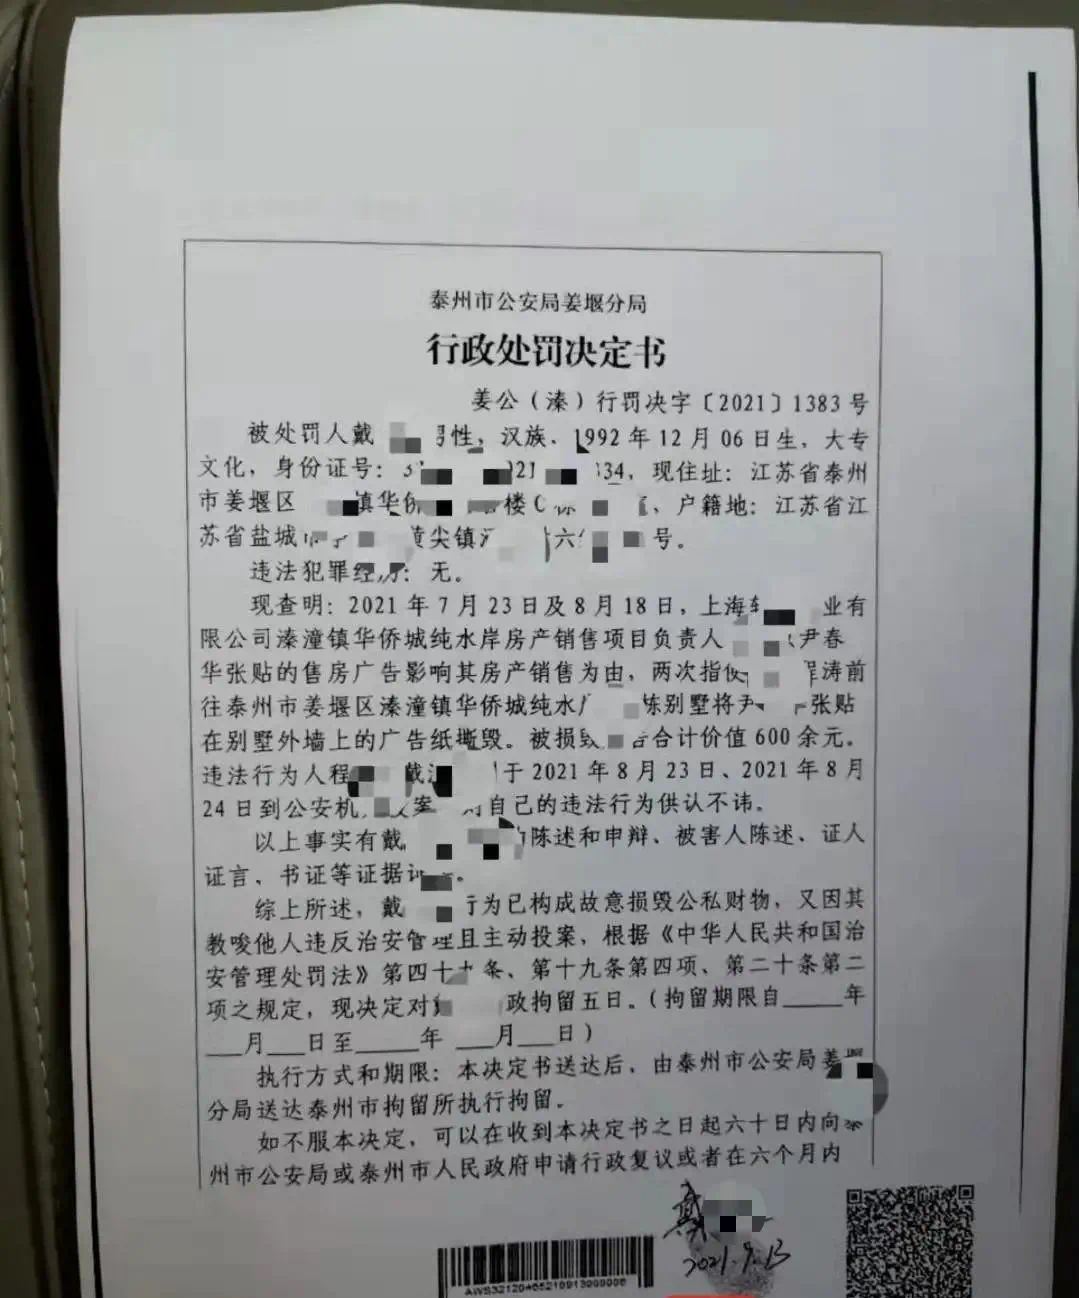 泰州市公安局姜堰分局
行政处罚决定书
姜公（溱）行罚决字〔2021〕1383号
被处罚人戴 男性，汉族，1992年12月06日生，大专
文化，身份证号：3 021 334，现住址：江苏省泰州
市姜堰区 镇华侨 楼C 、户籍地：江苏省江
苏省盐城市 黄尖镇 六 号。
违法犯罪经历：无。
现查明：2021年7月23日及8月18日，上海 业有
限公司溱潼镇华侨城纯水岸房产销售项目负责人 尹春
华张贴的售房广告影响其房产销售为由，两次指使 程涛前
往泰州市姜堰区溱潼镇华侨城纯水岸 栋别墅将尹 张贴
在别墅外墙上的广告纸撕毁。被损毁 合计价值600余元。
违法行为人程 戴 于2021年8月23日、2021年8月
24日到公安机 案 对自己的违法行为供认不讳。
以上事实有戴 的陈述和申辩、被害人陈述、证人
证言、书证等证据证 。
综上所述，戴 行为已构成故意损毁公私财物，又因其
教唆他人违反治安管理且主动投案，根据《中华人民共和国治
安管理处罚法》第四十九条、第十九条第四项、第二十条第二
项之规定，现决定对戴 政拘留五日。（拘留期限自_____年
___月___日至_____年 ___月___日）
执行方式和期限：本决定书送达后，由泰州市公安局姜堰
分局送达泰州市拘留所执行拘留。
如不服本决定，可以在收到本决定书之日起六十日内向泰
州市公安局或泰州市人民政府申请行政复议或者在六个月内
戴
2021.9.13